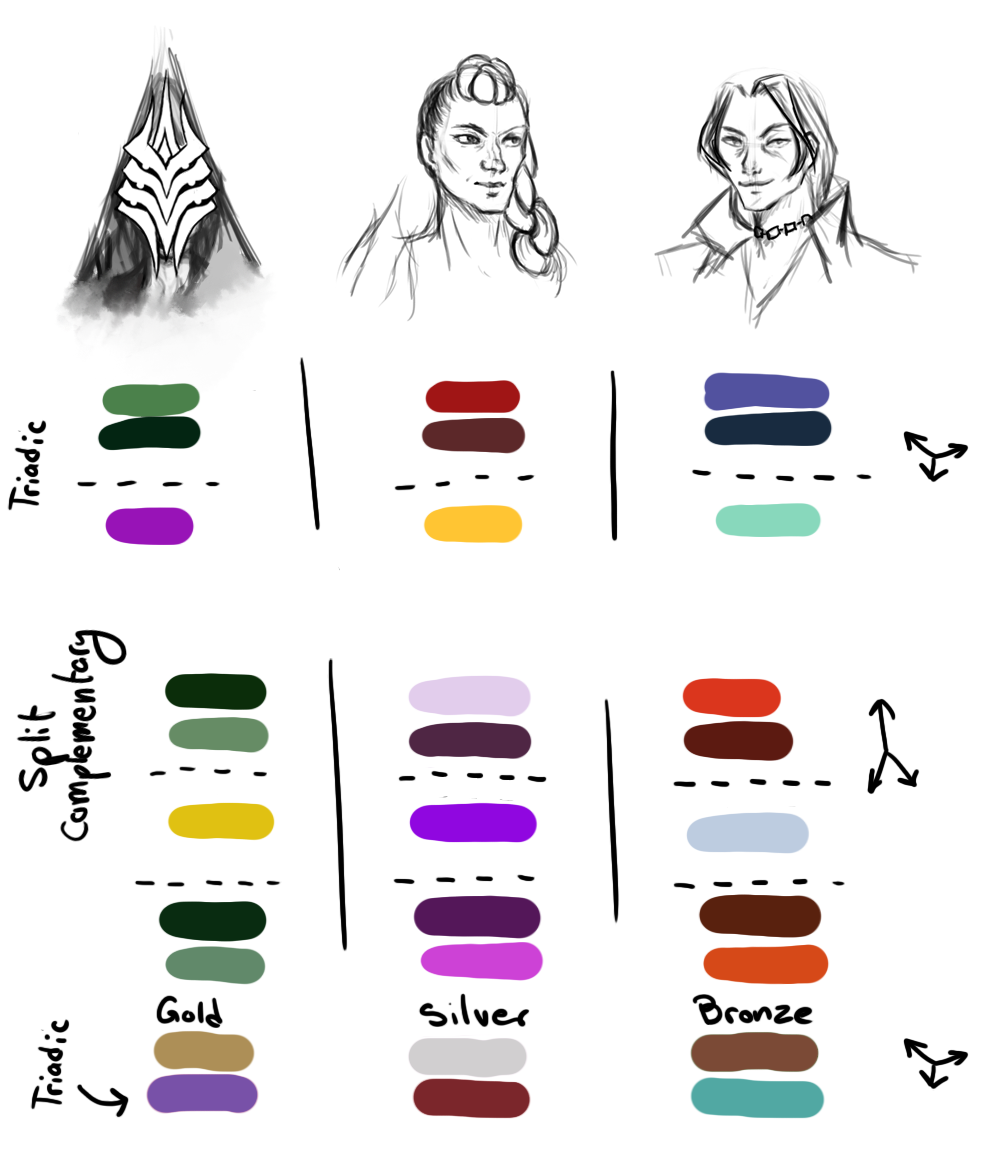 Triadic
Split
Complementary
Gold
Silver
Bronze
Triadic